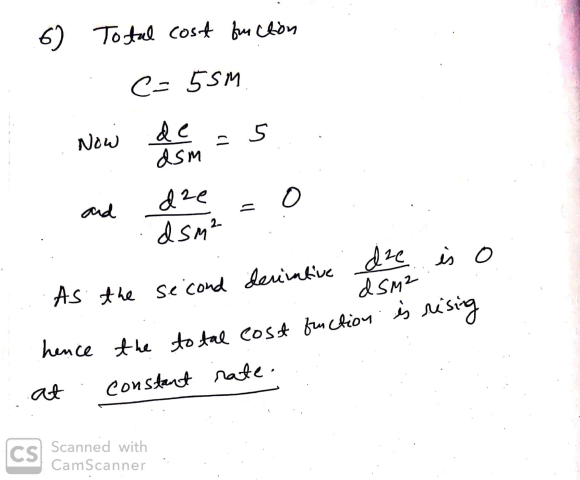 6) Total cost function
C = 5SM
Now dc/dSM = 5
and d²c/dSM² = 0
As the second derivative d²c/dSM² is 0
hence the total cost function is rising
at constant rate.
CS Scanned with
CamScanner